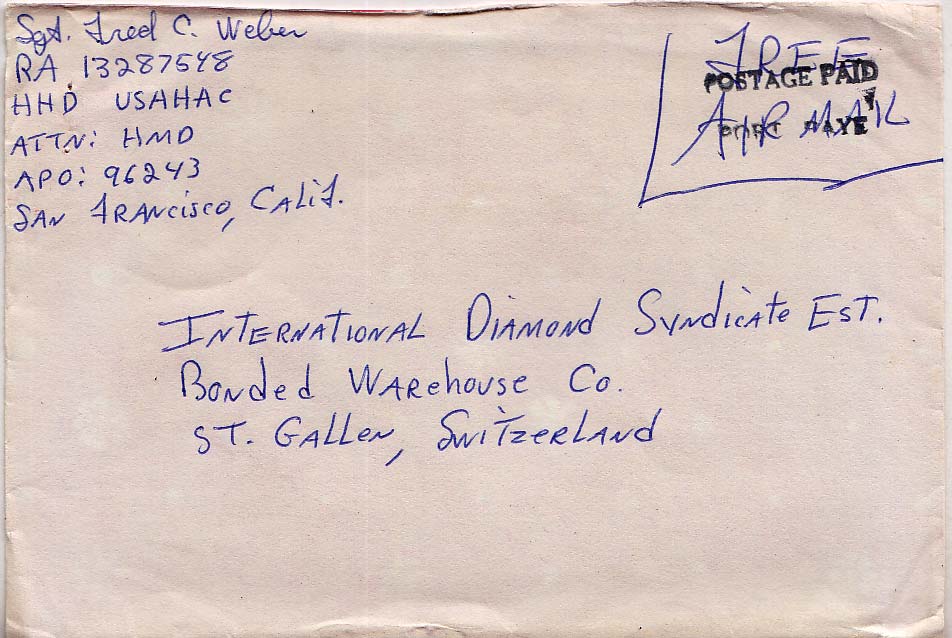 Sgt. Fred C. Weber
RA 13287548
HHD USAHAC
ATTN: HMD
APO: 96243
SAN FRANCISCO, CALIF.
FREE
POSTAGE PAID
AIR MAIL
PORT PAYE
INTERNATIONAL DIAMOND SYNDICATE EST.
BONDED WAREHOUSE CO.
ST. GALLEN, SWITZERLAND